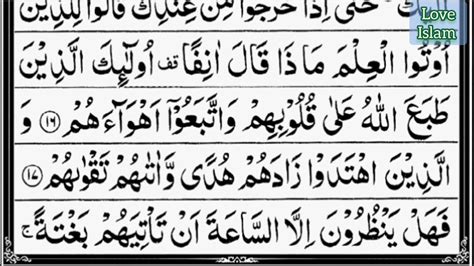 Love
Islam
اِلَيْكَ ۚ حَتّٰۤى اِذَا خَرَجُوْا مِنْ عِنْدِكَ قَالُوْا لِلَّذِيْنَ
اُوْتُوا الْعِلْمَ مَا ذَا قَالَ اٰنِفًا قف اُولٰٓئِكَ الَّذِيْنَ
طَبَعَ اللّٰهُ عَلٰى قُلُوْبِهِمْ وَاتَّبَعُوْۤا اَهْوَآءَهُمْ ﴿۱۶﴾ وَ
الَّذِيْنَ اهْتَدَوْا زَادَهُمْ هُدًى وَّاٰتٰىهُمْ تَقْوٰىهُمْ ﴿۱۷﴾
فَهَلْ يَنْظُرُوْنَ اِلَّا السَّاعَةَ اَنْ تَاْتِيَهُمْ بَغْتَةً ۚ